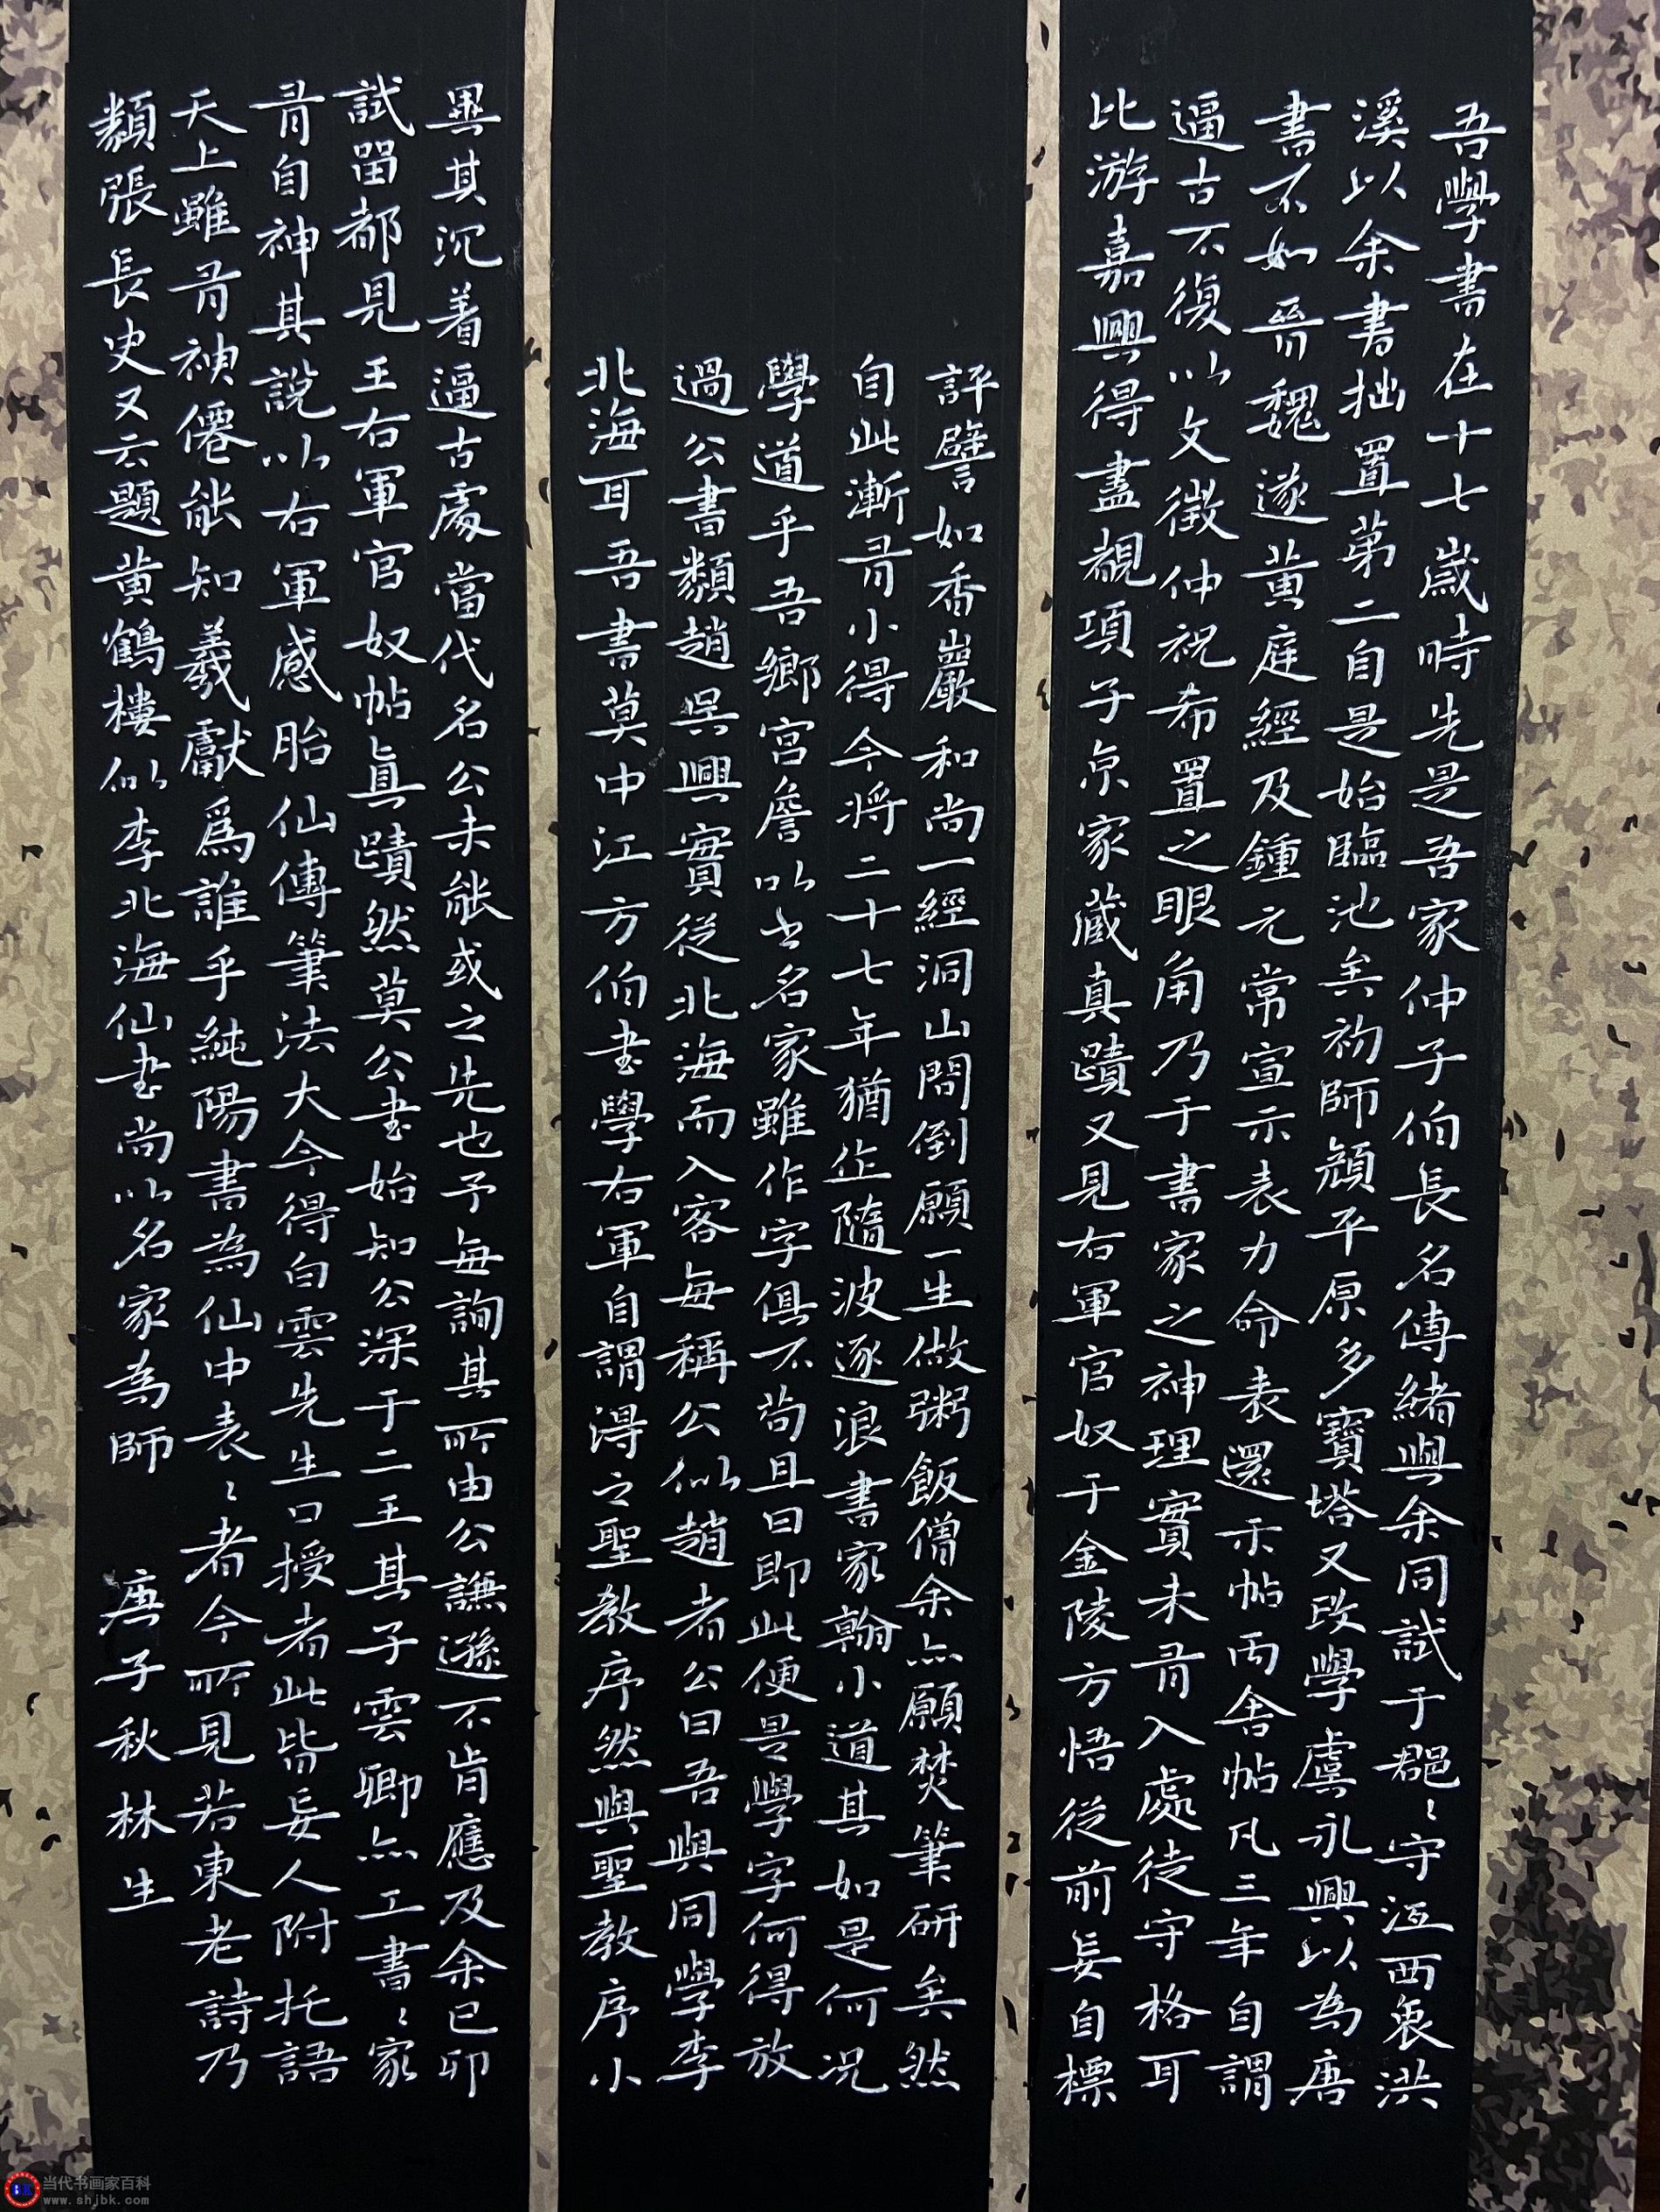 吾學書在十七歲時先是吾家仲子伯長名傳緒與余同試于郡〻守江西衷洪
溪以余書拙置第二自是始臨池矣初師顏平原多寶塔又改學虞永興以為唐
書不如晉魏遂黄庭經及鍾元常宣示表力命表還示帖丙舍帖凡三年自謂
逼古不復以文徵仲祝希置之眼角乃于書家之神理實未有入處徒守格耳
比游嘉興得盡覩項子京家藏真蹟又見右軍官奴于金陵方悟從前妄自標
評譬如香巖和尚一經洞山問倒願一生做粥飯僧余亦願焚筆研矣然
自此漸有小得今將二十七年猶作隨波逐浪書家翰小道其如是何况
學道乎吾鄉宮詹以書名家雖作字俱不苟且曰即此便是學字何得放
過公書類趙吳興實從北海而入客每稱公似趙者公曰吾與同學李
北海耳吾書莫中江方伯書學右軍自謂得之聖教序然與聖教序小
異其沉着逼古處當代名公未能或之先也予每詢其所由公謙遜不肯應及余已卯
試留都見王右軍官奴帖真蹟然莫公書始知公深于二王其子雲卿亦工書〻家
有自神其說以右軍感胎仙傳筆法大令得白雲先生口授者此皆妄人附托語
天上雖有神僊能知羲獻爲誰乎純陽書為仙中表〻者今所見若東老詩乃
類張長史又云題黄鶴樓似李北海仙書尚以名家為師 唐子秋林生
当代书画家百科
www.shjbk.com